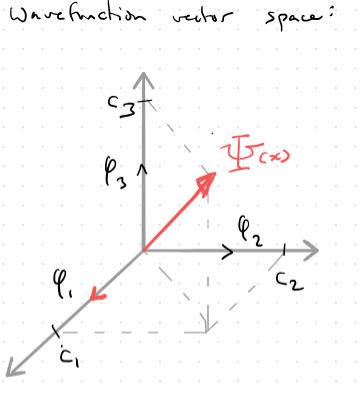 Wavefunction vector space:
c₃
Ψ(x)
φ₃
φ₂
φ₁
c₂
c₁